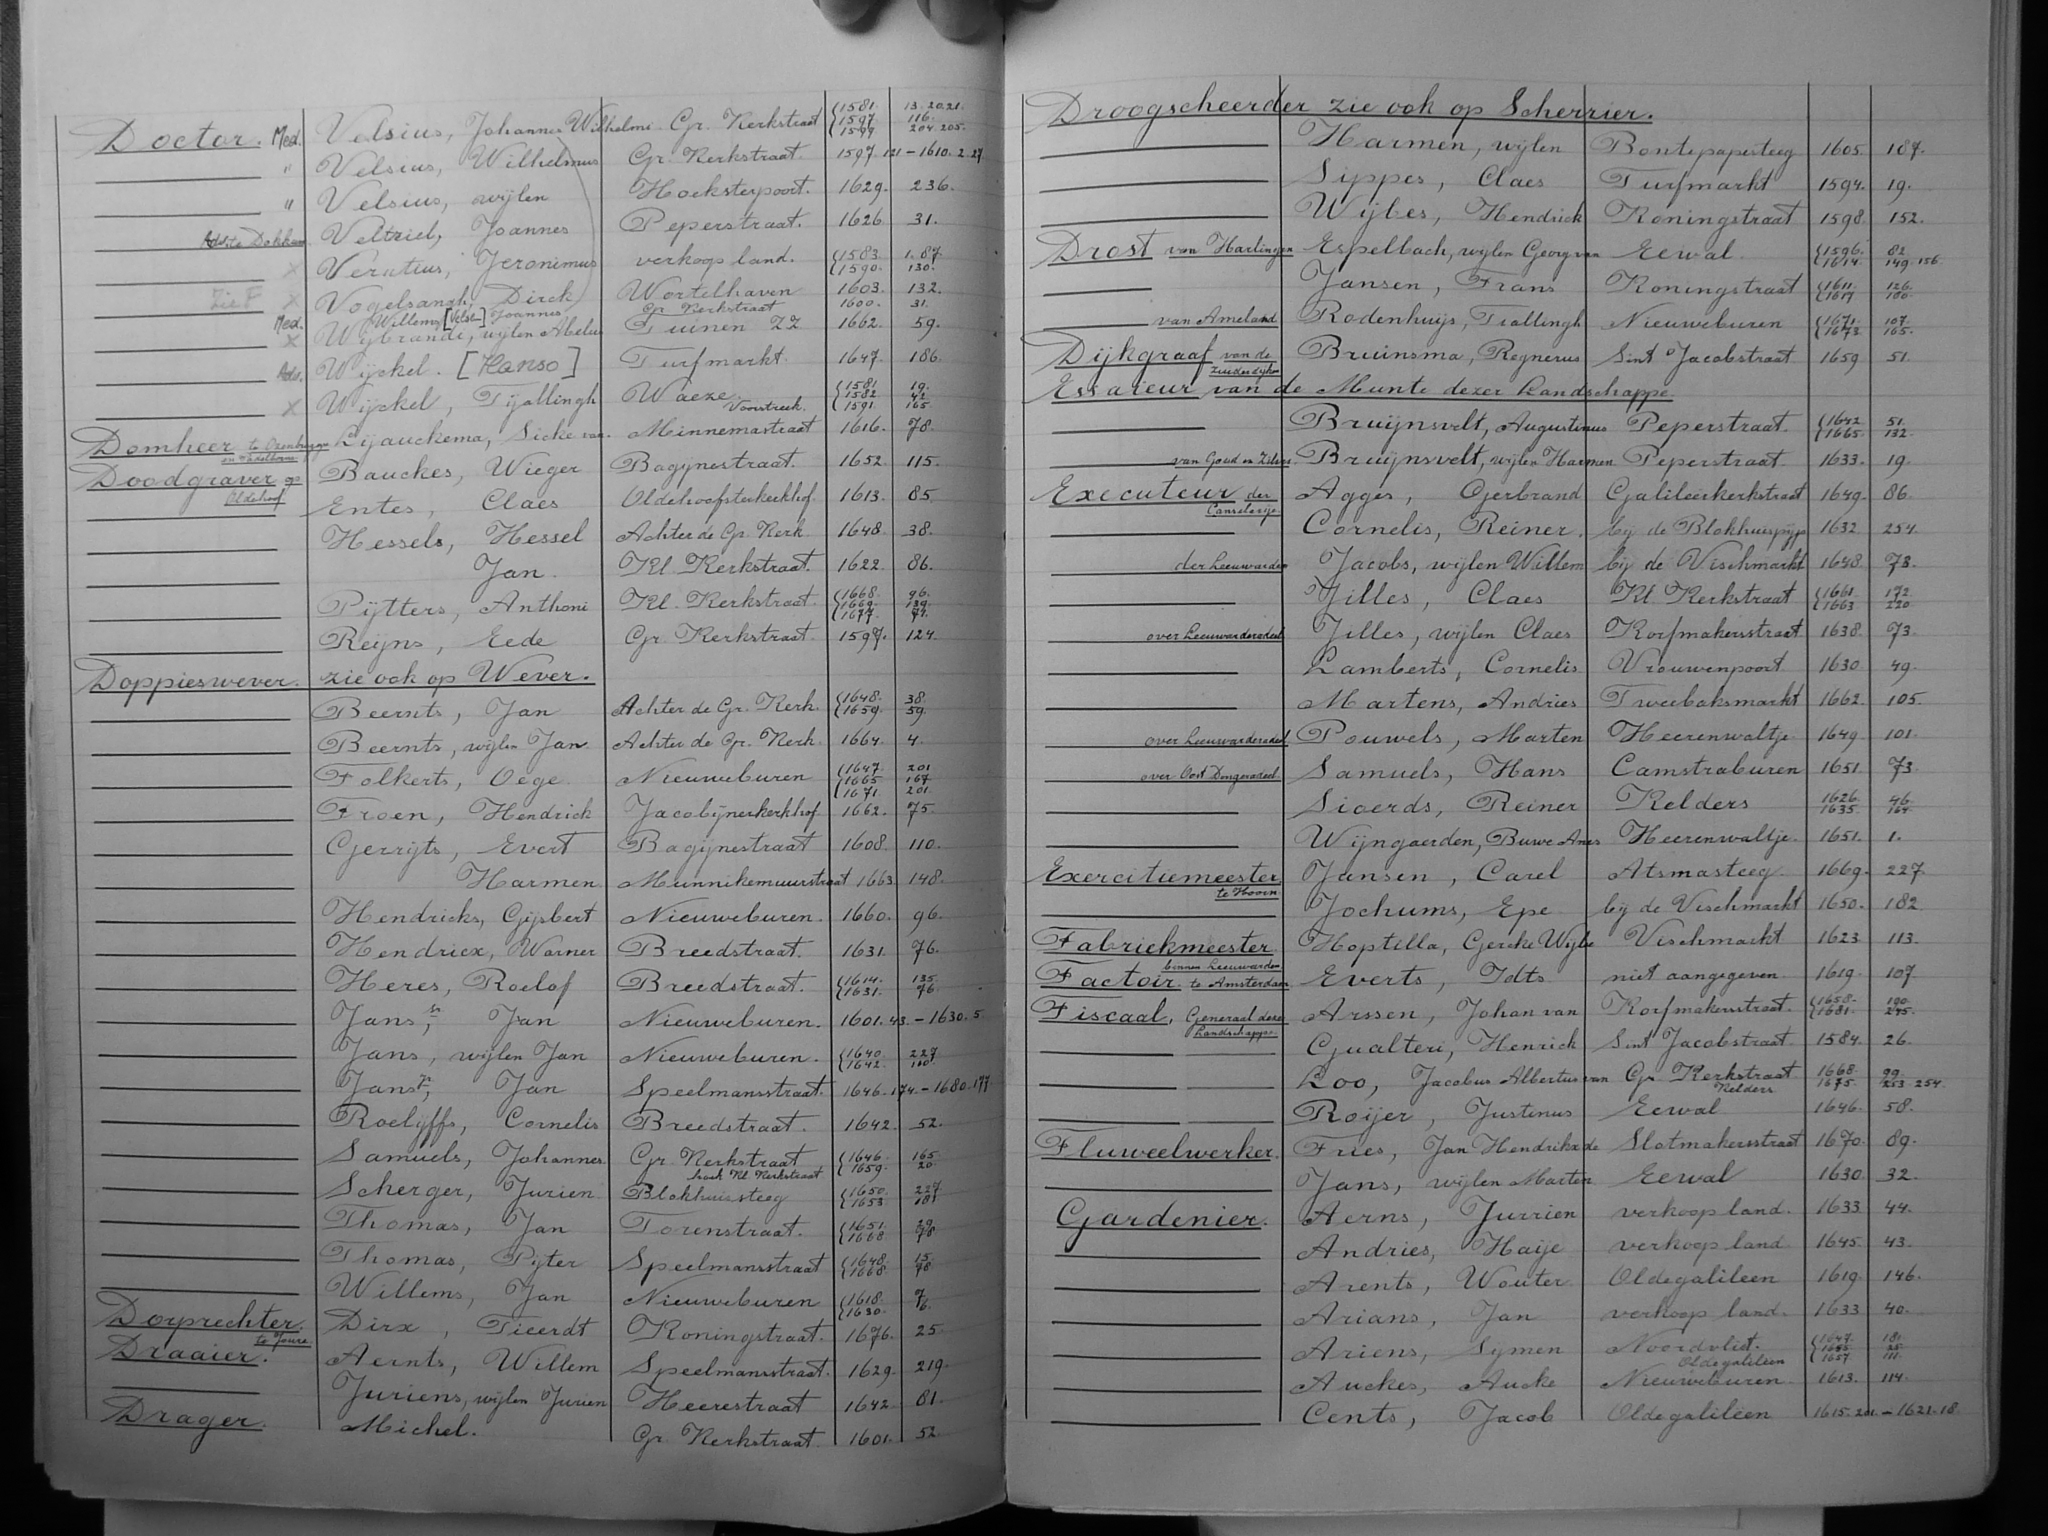 Doctor. Med. Velsius, Johannes Wilhelmi Gr. Kerkstraat {1581. 13. 20. 21. {1597 116. {1599 204. 205.
" Velsius, Wilhelmus Gr. Kerkstraat. 1597. 121 – 1610. 2. 27
" Velsius, wijlen Hoeksterpoort. 1629. 236.
Velteriel, Joannes Peperstraat. 1626 31.
X Verutius, Jeronimus verkoop land. {1583. 1. 87 {1590. 130.
X Vogelsangh, Dirck Wortelhaven 1603. 132.
Willems [Vels.] Joannes Gr. Kerkstraat 1600. 31.
Med. X Wybrandi, wijlen Abelus Tuinen ZZ 1662. 59.
Adv. Wijckel. [Hanso] Turfmarkt. 1647. 186.
X Wijckel, Tjallingh Waeze. Voorstreek. {1581 19. {1582. 42. {1591. 165.
Domheer Lyauckema, Sicke van Minnemastraat 1616. 78.
Doodgraver op Oldehoof Bauckes, Wieger Bagynestraat. 1652. 115.
Entes, Claes Oldehoofsterkerkhof. 1613. 85.
Hessels, Hessel Achter de Gr. Kerk 1648. 38.
Jan. Kl. Kerkstraat. 1622. 86.
Pijtters, Anthoni Kl. Kerkstraat. {1668. 96. {1669. 139. {1677. 77.
Reyns, Eede Gr. Kerkstraat. 1597. 124.
Doppieswever. zie ook op Wever.
Beernts, Jan Achter de Gr. Kerk. {1648. 38. {1659. 59.
Beernts, wijlen Jan. Achter de Gr. Kerk. 1664. 4.
Folkerts, Oege. Nieuweburen {1647 201 {1665 167 {1671. 201.
Froen, Hendrick Jacobijnerkerkhof 1662. 75.
Gerryts, Evert Bagijnestraat 1608. 110.
Harmen. Munnikemuurstraat 1663. 148.
Hendricks, Gijsbert Nieuweburen. 1660. 96.
Hendricx, Warner Breedstraat. 1631. 76.
Heres, Roelof Breedstraat. {1614. 135. {1631. 76.
Jans sr., Jan Nieuweburen. 1601. 43. – 1630. 5
Jans, wijlen Jan Nieuweburen. {1640 227 {1642. 100.
Jans jr., Jan Speelmansstraat. 1646. 174. – 1680. 177
Roelyffs, Cornelis Breedstraat. 1642. 52.
Samuels, Johannes. Gr. Kerkstraat hoek Kl. Kerkstraat {1646. 165 {1659. 20.
Scherger, Jurien Blokhuissteeg {1650. 227 {1653 181
Thomas, Jan Torenstraat. {1651. 29. {1668 78.
Thomas, Pijter Speelmansstraat {1648. 15. {1668. 78.
Willems, Jan Nieuweburen {1618. 7. {1630. 6.
Dorprechter. te Joure. Dirx, Tieerdt Koningstraat. 1676. 25.
Draaier. Aernts, Willem Speelmansstraat. 1629. 219.
Juriens, wijlen Jurien Heerestraat 1642. 81.
Drager. Michel. Gr. Kerkstraat. 1601. 52.
Droogscheerder zie ook op Scherrier.
Harmen, wijlen Bontepapesteeg 1605. 187.
Sippes, Claes Turfmarkt 1594. 19.
Wijbes, Hendrick Koningstraat 1598. 152.
Drost van Harlingen Espelbach, wijlen Georg van Eewal. {1596. 82. {1614. 149. 156.
Jansen, Frans Koningstraat {1611. 126. {1617 100.
van Ameland Rodenhuijs, Tiallingh Nieuweburen {1671. 107. {1673. 165.
Dijkgraaf van de Zuiderdijken Bruinsma, Regnerus Sint Jacobstraat. 1659 51.
Essaieur van de Munte dezer Landschappe.
Bruijnsvelt, Augustinus Peperstraat. {1642 51. {1665. 132.
van Goud en Zilver. Bruijnsvelt, wijlen Harmen Peperstraat. 1633. 19.
Executeur der Canselerije. Agges, Gerbrand Galileërkerkstraat 1649. 86.
Cornelis, Reiner. bij de Blokhuispijp 1632. 254.
der Leeuwarden Jacobs, wijlen Willem bij de Vischmarkt 1648. 73.
Jilles, Claes Kl. Kerkstraat {1661. 172. {1663 220.
over Leeuwarderadeel Jilles, wijlen Claes Korfmakersstraat. 1638. 73.
Lamberts, Cornelis Vrouwenpoort 1630. 49.
Martens, Andries Tweebaksmarkt 1662. 105.
over Leeuwarderadeel Pouwels, Marten Heerenwaltje 1649 101.
over Oost Dongeradeel Samuels, Hans Camstraburen 1651. 73.
Sioerds, Reiner Kelders 1626. 46. 1635. 164.
Wijngaerden, Buwe Anes Heerenwaltje. 1651. 1.
Exercitiemeester te Hoorn Jansen, Carel Atsmasteeg. 1669. 227
Jochums, Epe bij de Vischmarkt 1650. 182
Fabriekmeester binnen Leeuwarden Hoptilla, Gercke Wijbe Vischmarkt 1623. 113.
Factoir. te Amsterdam Everts, Idts niet aangegeven. 1619. 107.
Fiscaal, Generaal dezer Landschappe. Arssen, Johan van Korfmakersstraat. {1658. 190. {1681. 245.
Gualteri, Henrick Sint Jacobstraat. 1584. 26.
Loo, Jacobus Albertus van Gr. Kerkstraat Kelders 1668. 99. 1675. 253. 254.
Roijer, Justinus Eewal 1646. 58.
Fluweelwerker. Fries, Jan Hendrikx de Slotmakersstraat 1670. 89.
Jans, wijlen Marten Eewal 1630. 32.
Gardenier. Aerns, Jurrien verkoop land. 1633. 44.
Andries, Haije verkoop land 1645. 43.
Arents, Wouter Oldegalileen 1619. 146.
Arians, Jan verkoop land. 1633 40.
Ariens, Symen Noordvliet. Oldegalileen {1647. 181. {1657. 111.
Auckes, Aucke Nieuweburen. 1613. 114.
Cents, Jacob Oldegalileen 1615. 201 – 1621. 18